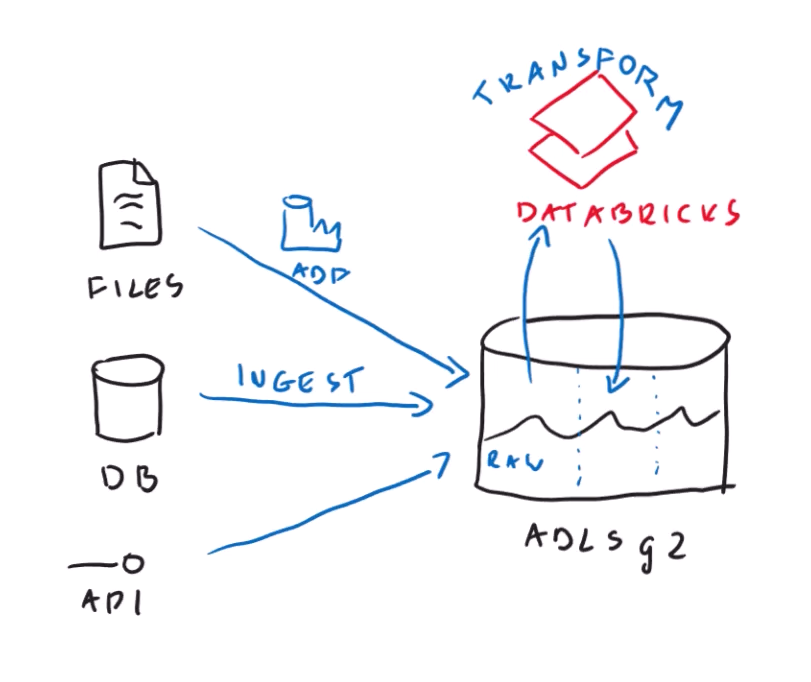 TRANSFORM
DATABRICKS
FILES
ADF
INGEST
DB
RAW
ADLS g2
API